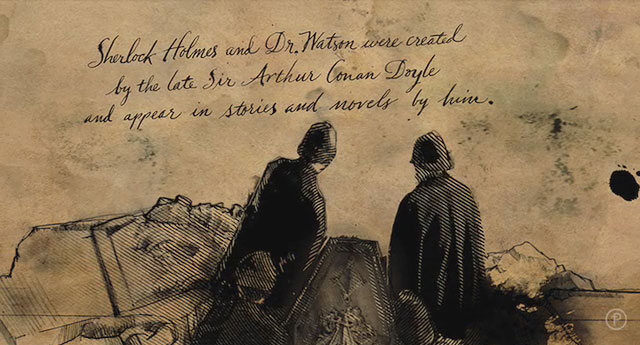 Sherlock Holmes and Dr. Watson were created
by the late Sir Arthur Conan Doyle
and appear in stories and novels by him.